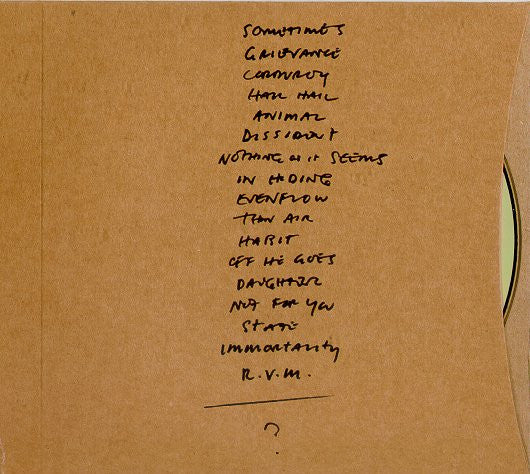 SOMETIMES
GRIEVANCE
CORDUROY
HAIL HAIL
ANIMAL
DISSIDENT
NOTHING AS IT SEEMS
IN HIDING
EVENFLOW
THIN AIR
HABIT
OFF HE GOES
DAUGHTER
NOT FOR YOU
STATE
IMMORTALITY
R.V.M.
?